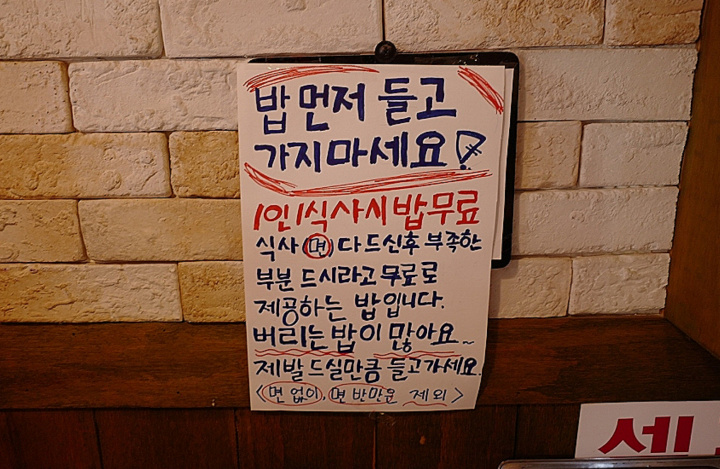 밥 먼저 들고
가지마세요!
1인1식사시 밥무료
식사(면)다드신후 부족한
부분 드시라고 무료로
제공하는 밥입니다.
버리는밥이 많아요~
제발 드실만큼 들고가세요.
<면 없이, 면 반만은 제외>
세